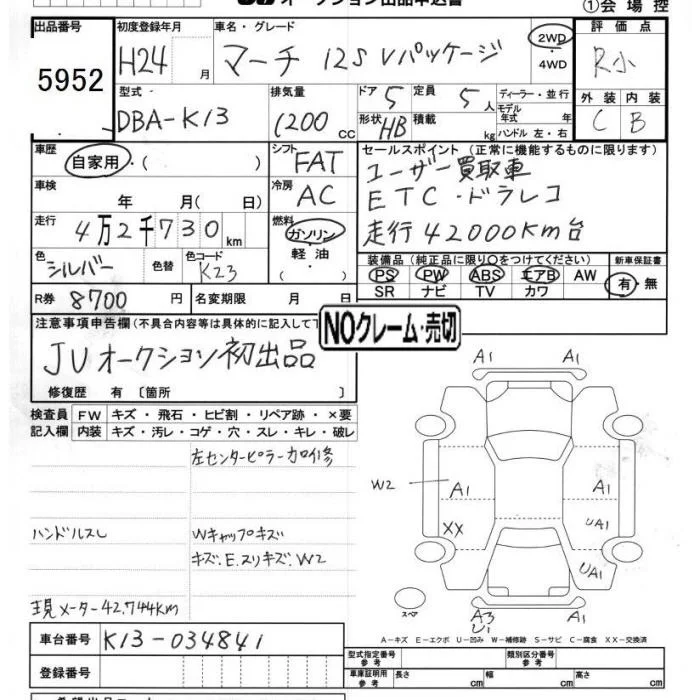 オークション出品申込書 ①会場控
出品番号 初度登録年月 車名・グレード 評価点
5952 H24 月 マーチ 12S Vパッケージ 2WD・4WD R小
型式 排気量 ドア 定員 ディーラー・並行 外装 内装
DBA-K13 1200 CC 5 5人 モデル年式 年 C B
形状 HB 積載 kg ハンドル 左・右
車歴 自家用・( ) シフト FAT セールスポイント (正常に機能するものに限ります)
ユーザー買取車
車検 年 月( 日) 冷房 AC ETC・ドラレコ
走行 4万2千730km 燃料 ガソリン・軽油・( ) 走行42000Km台
色 シルバー 色替 色コード K23
装備品 (純正品に限り○をつけてください) 新車保証書
PS PW ABS エアB AW 有・無
SR ナビ TV カワ
R券 8700 円 名変期限 月 日
注意事項申告欄(不具合内容等は具体的に記入して下
NOクレーム・売切
JUオークション初出品
修復歴 有 〔箇所 〕
検査員 FW キズ・飛石・ヒビ割・リペア跡・×要
記入欄 内装 キズ・汚レ・コゲ・穴・スレ・キレ・破レ
左センターピラー加修
ハンドルスレ Wキャップキズ
キズ.E.スリキズ.W2
現メーター42.744km
A1
A1
W2 A1 A1
XX UA1
UA1
スペア A3 A1
U1
A-キズ E-エクボ U-凹み W-補修跡 S-サビ C-腐食 XX-交換済
車台番号 K13-034841
登録番号
型式指定番号 参考 類別区分番号 参考
車庫証明用 参考 長さ cm 幅 cm 高さ cm